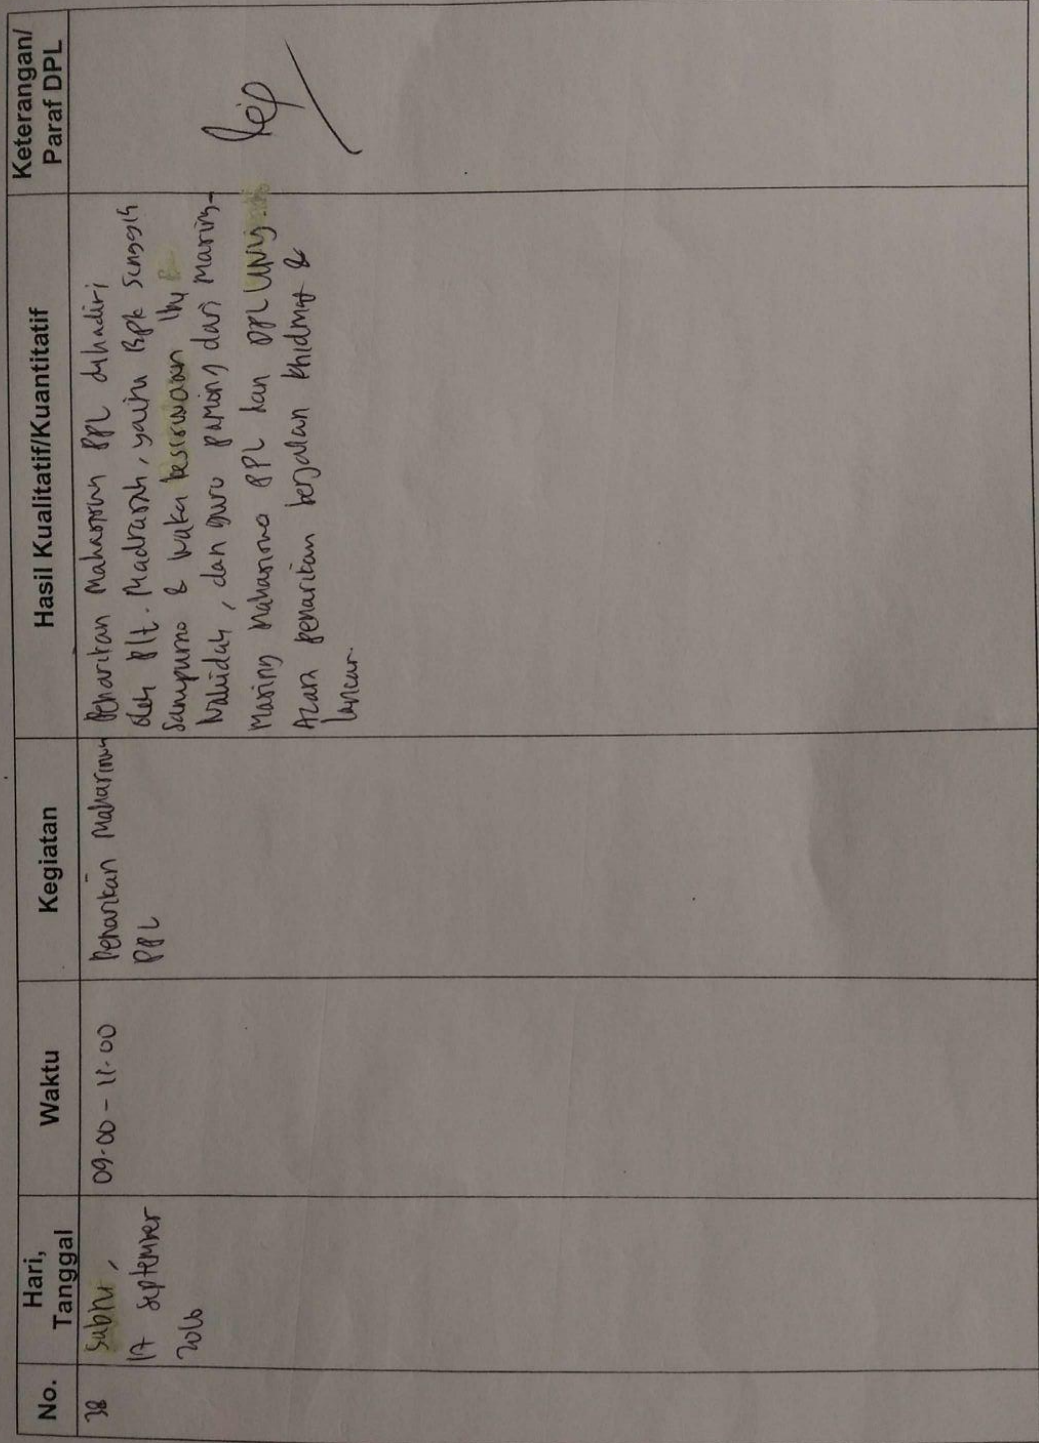 No.
Hari,
Tanggal
Waktu
Kegiatan
Hasil Kualitatif/Kuantitatif
Keterangan/
Paraf DPL
38
Sabtu,
17 September
2016
09.00 - 11.00
Penarikan Mahasiswa
PPL
Penarikan Mahasiswa PPL dihadiri
oleh Plt. Madrasah, yaitu Bpk Singgih
Sampurno & Waka kesiswaan Ibu
Wahidah, dan guru pamong dari Masing-
Masing Mahasiswa PPL dan DPL UNY
Acara penarikan berjalan khidmat &
lancar.